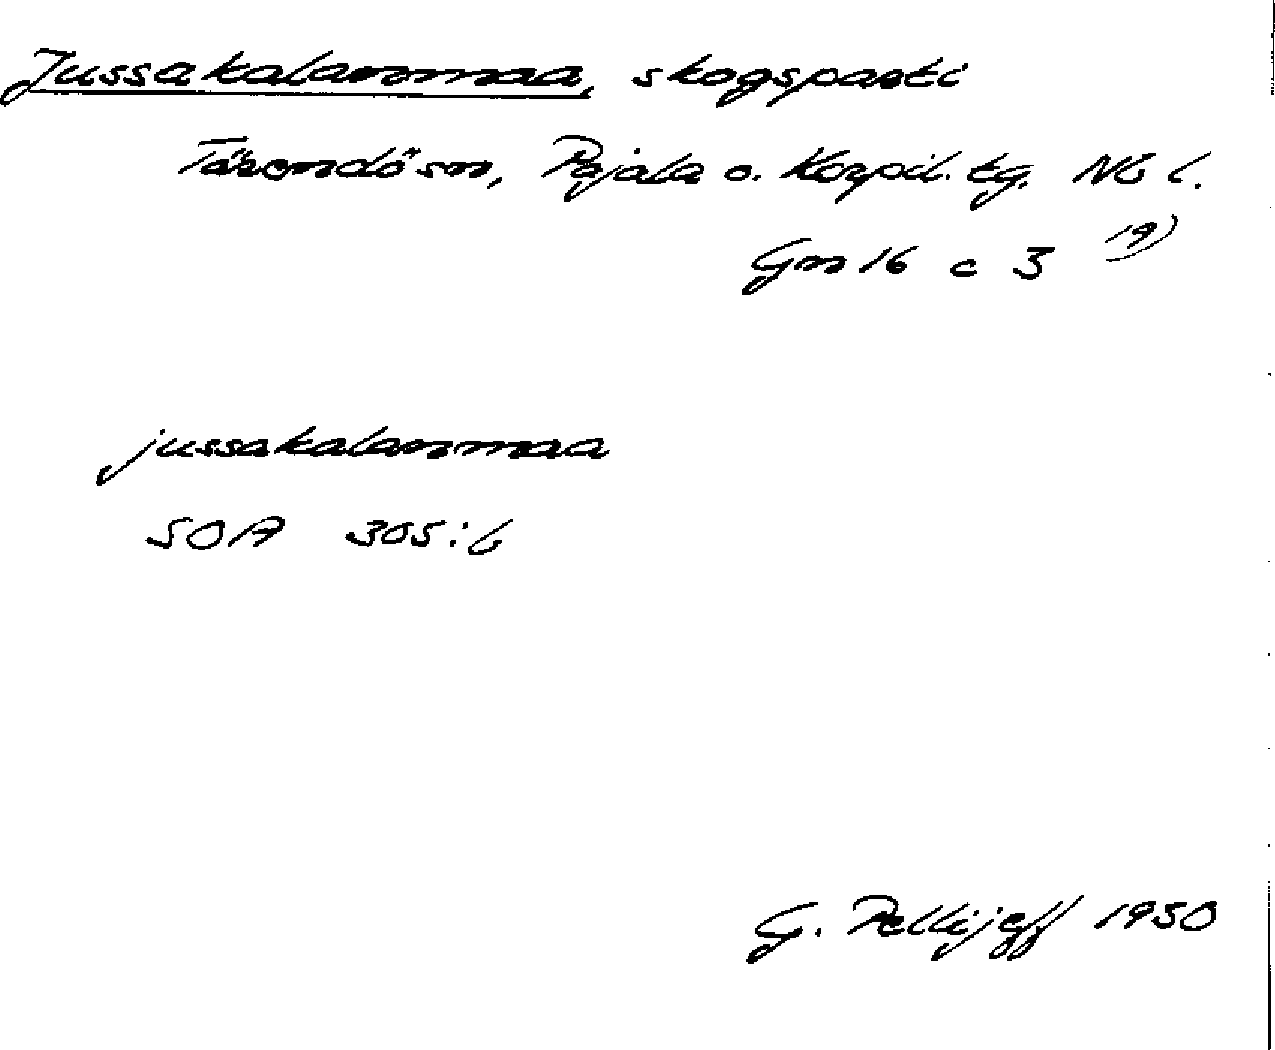 Jussakalanmaa, skogsparti
Tärendö sn, Pajala o. Korpil. tg. Nb l.
Gm 16 c 3 19)
jussakalanmaa
SOA 305:6
G. Pellijeff 1950